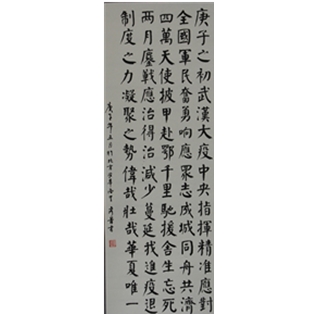 庚子之初武漢大疫中央指揮精准應對
全國軍民奮勇响應眾志成城同舟共濟
四萬天使披甲赴鄂千里馳援舍生忘死
兩月鏖戰應治得治減少蔓延我進疫退
制度之力凝聚之勢偉哉壯哉華夏唯一
庚子年五月於北京